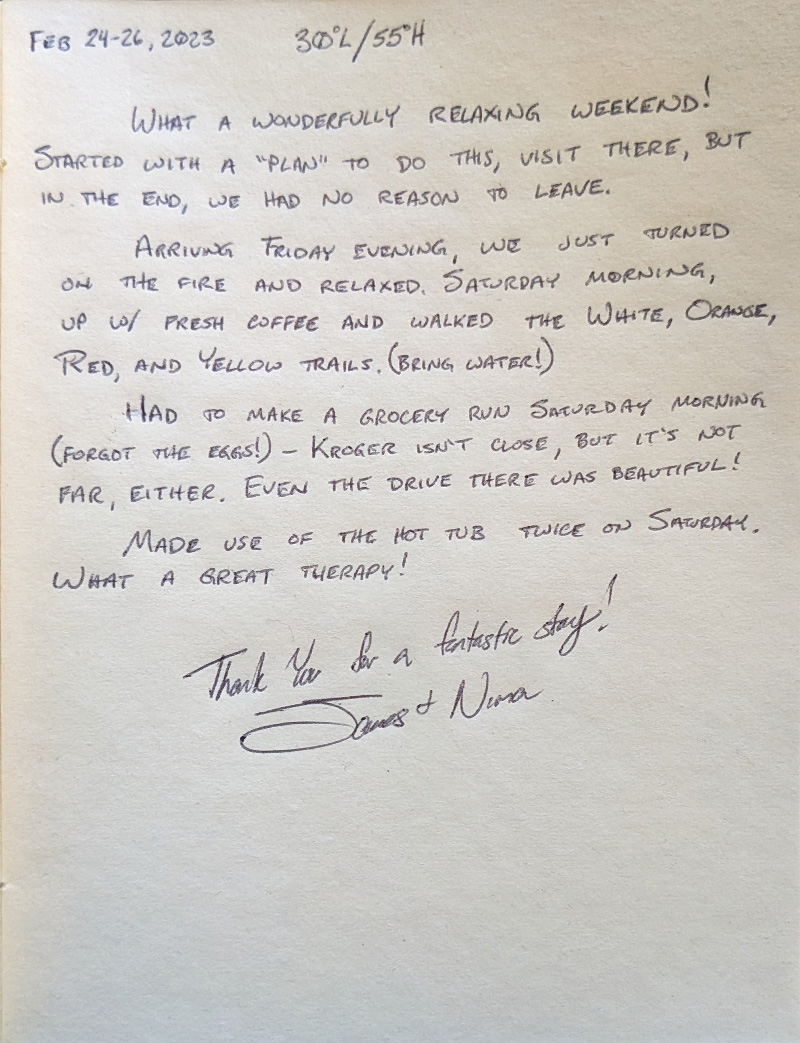 FEB 24-26, 2023 30°L/55°H
WHAT A WONDERFULLY RELAXING WEEKEND!
STARTED WITH A "PLAN" TO DO THIS, VISIT THERE, BUT
IN THE END, WE HAD NO REASON TO LEAVE.
ARRIVING FRIDAY EVENING, WE JUST TURNED
ON THE FIRE AND RELAXED. SATURDAY MORNING,
UP W/ FRESH COFFEE AND WALKED THE WHITE, ORANGE,
RED, AND YELLOW TRAILS. (BRING WATER!)
HAD TO MAKE A GROCERY RUN SATURDAY MORNING
(FORGOT THE EGGS!) – KROGER ISN'T CLOSE, BUT IT'S NOT
FAR, EITHER. EVEN THE DRIVE THERE WAS BEAUTIFUL!
MADE USE OF THE HOT TUB TWICE ON SATURDAY.
WHAT A GREAT THERAPY!
Thank You for a fantastic stay!
James +